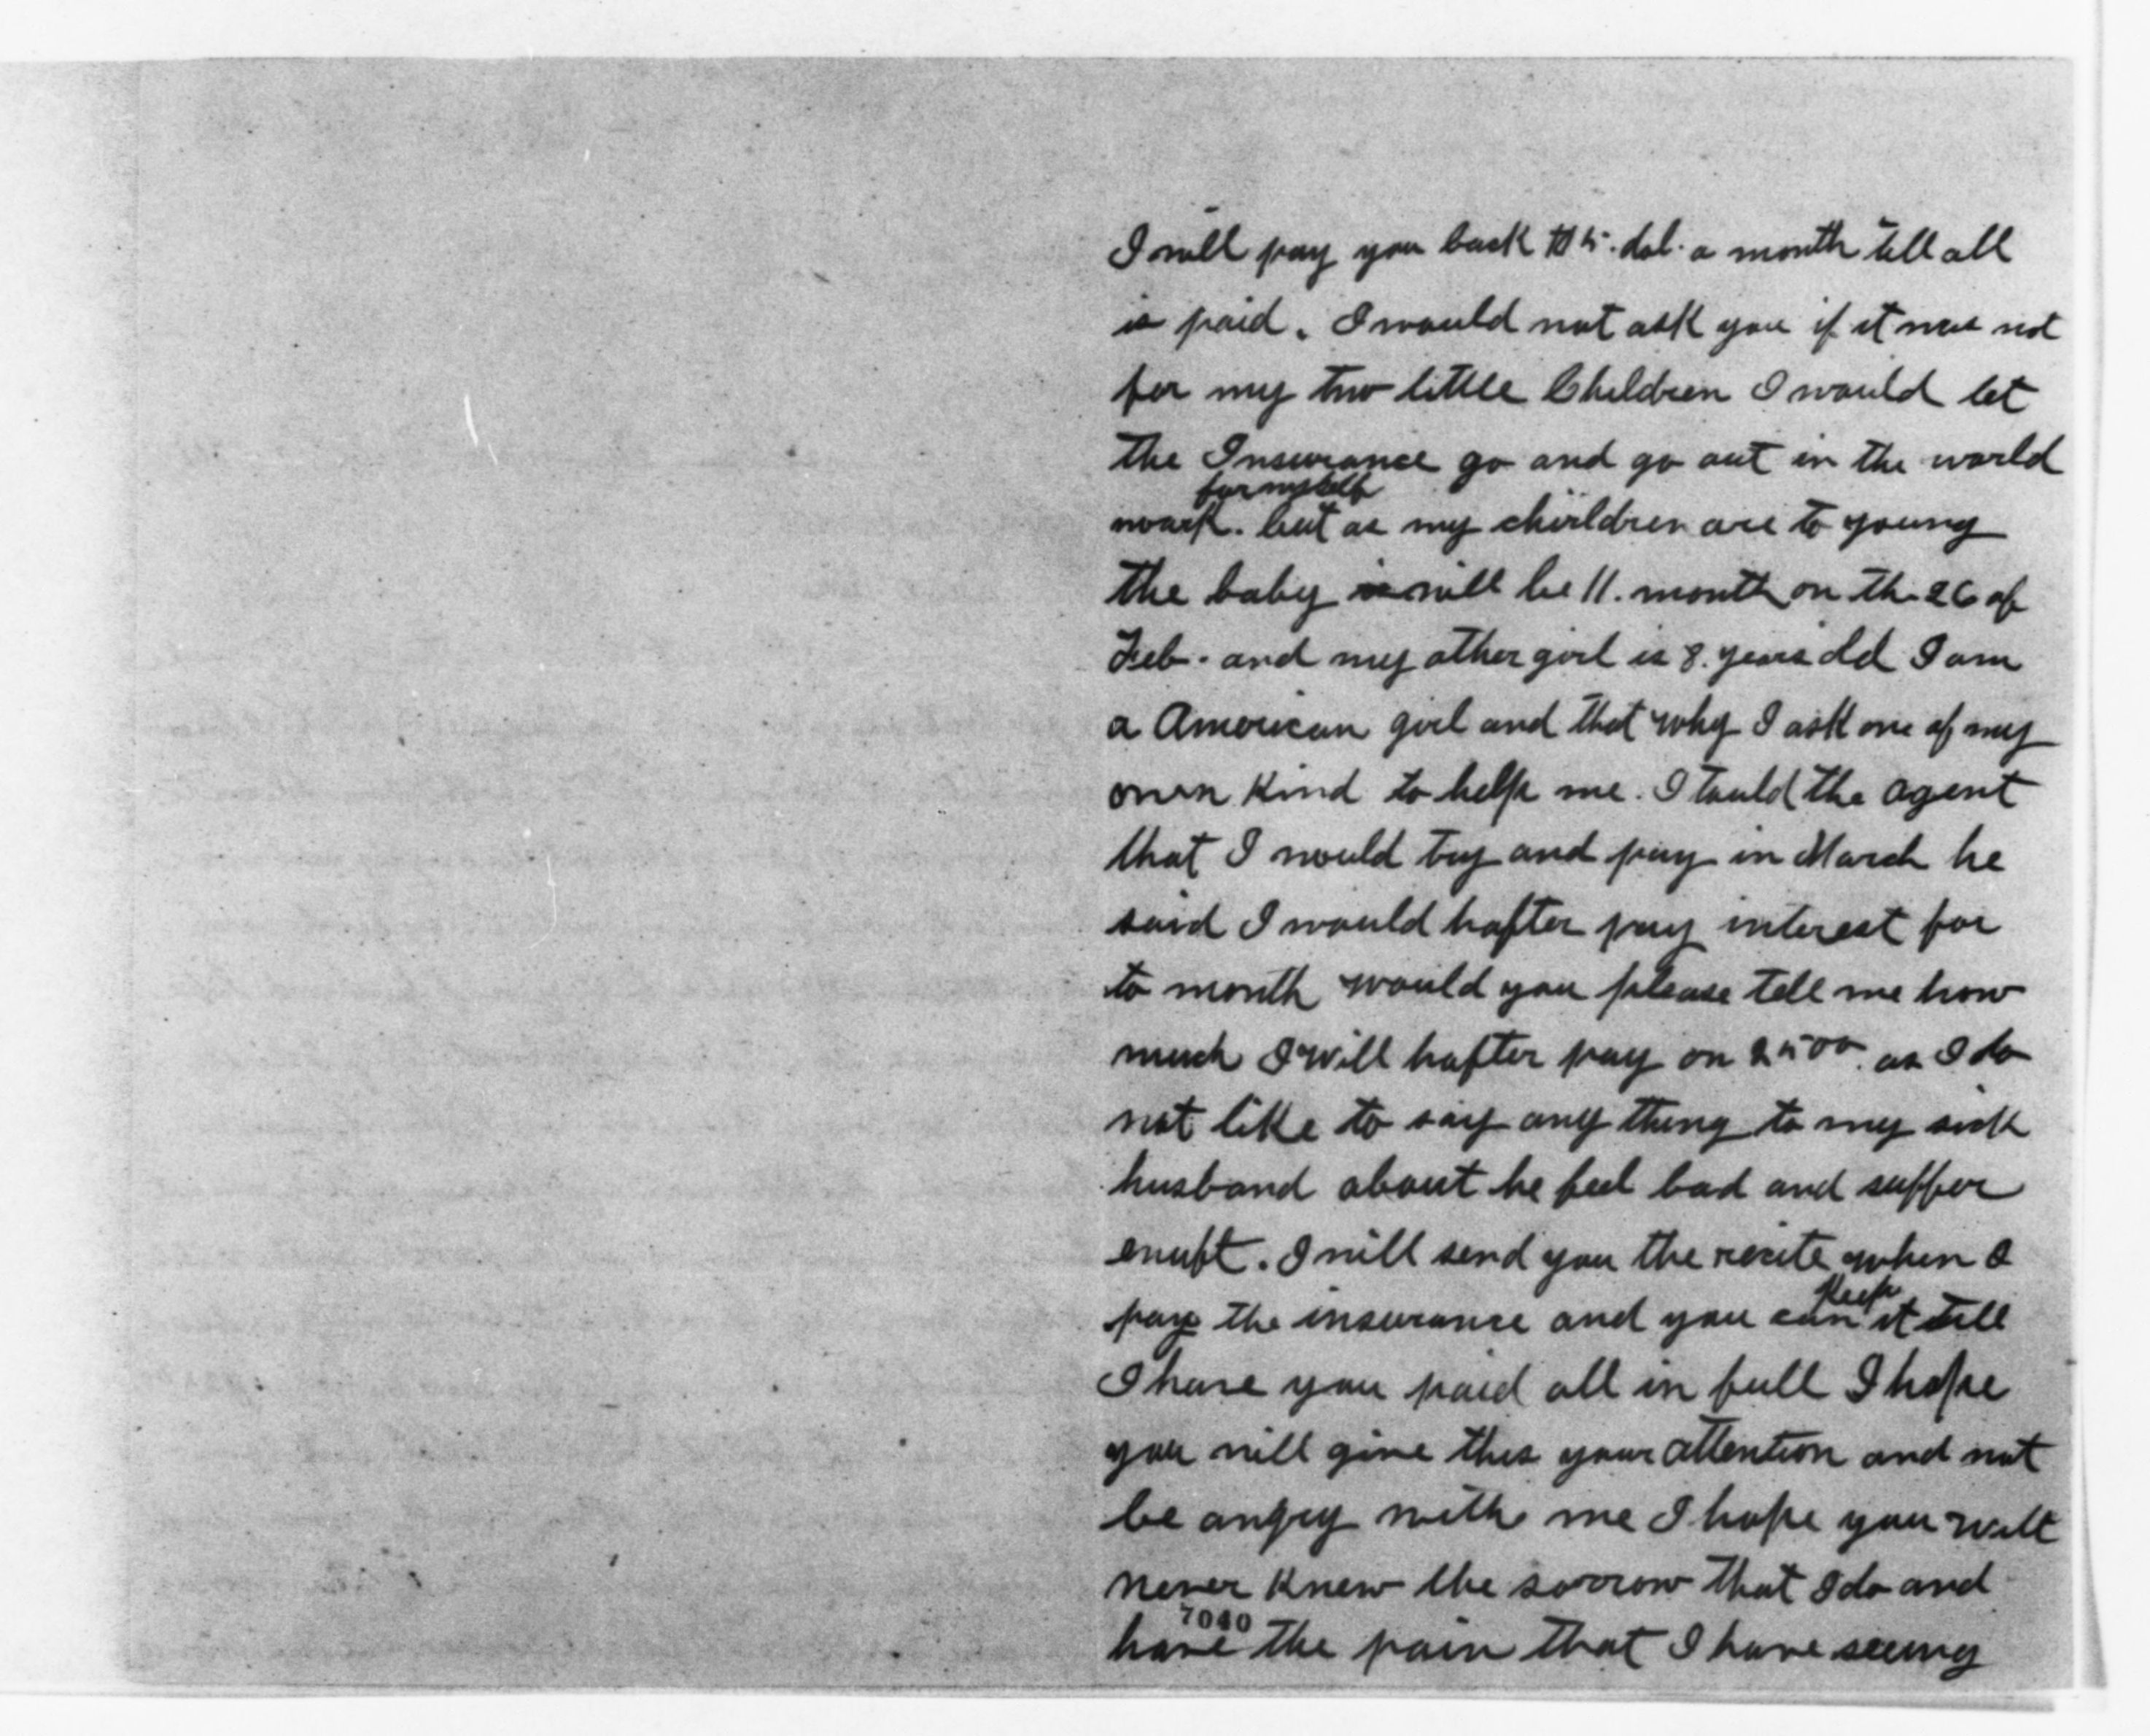 I will pay you back 5. dol. a month till all
is paid. I would not ask you if it was not
for my two little Children I would let
the Insurance go and go out in the world
for myself
work. but as my chirldren are to young
the baby will be 11. month on the 26 of
Feb. and my other girl is 8. years old I am
a American girl and that why I ask one of my
own kind to help me. I tould the agent
that I would try and pay in March he
said I would hafter pay interest for
to month would you please tell me how
much I will hafter pay on 2500. as I do
not like to say any thing to my sick
husband about he feel bad and suffer
enuft. I will send you the recite when I
keep
pay the insurance and you can it till
I have you paid all in full I hope
you will give this your attention and not
be angry with me I hope you will
never knew the sorrow that I do and
7040
have the pain that I have seeing